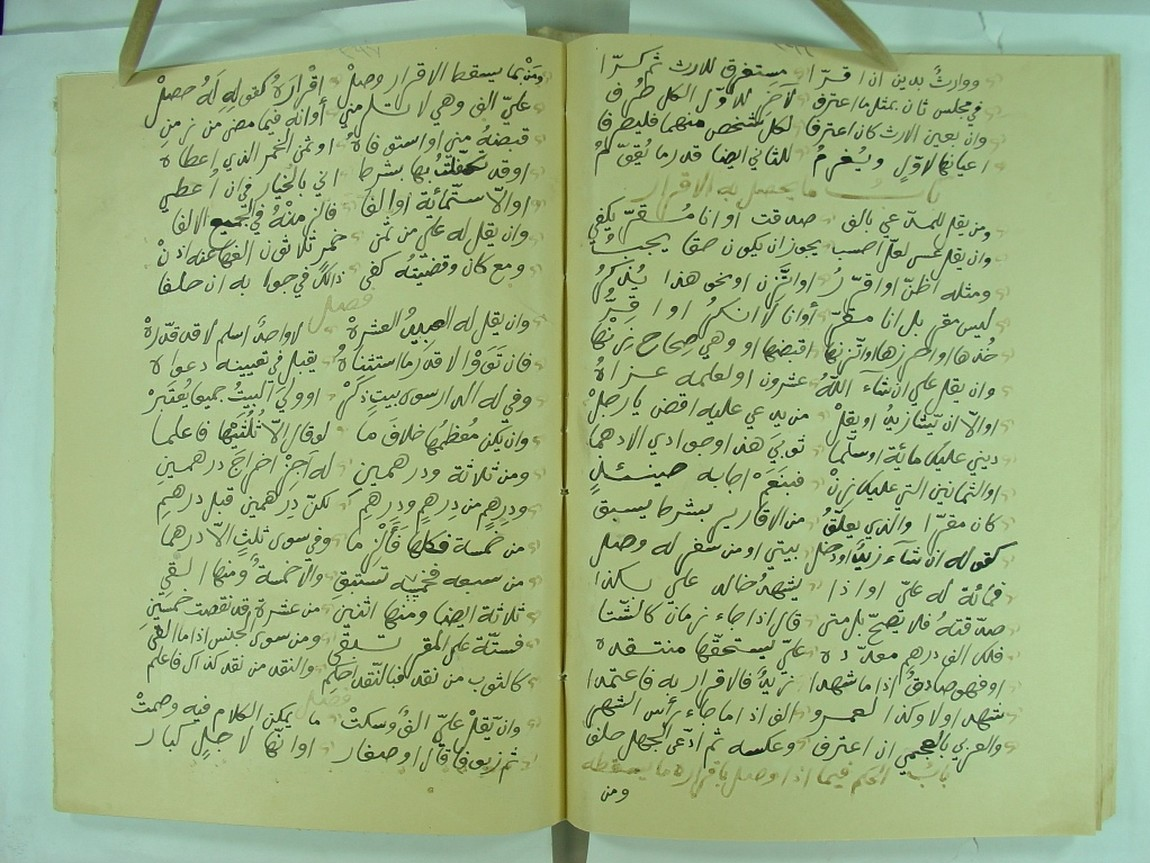 ووارثٌ بدين ان اقرّا مستغرق للارث ثم كرّا
في مجلس ثان بمثل ما اعترف لآخر للاوّل الكل صُرف
وان بعين الارث كان اعترفا لكل شخص منهما فليصرفا
اعيانها لاوّلٍ ويُغرمُ للثاني ايضا قدر ما يُقوّمُ
بابُ ما يحصل به الاقرار
ومن يقل للمدّعي بالف صدقت او انا مُقرّ يكفي
وان يقل عسى لعلّ احسب يجوز ان يكون حقا يحسبُ
ومثله اظنّ او اقرّ اواتّزن او نحو هذا يُذكرُ
ليس مقر بل انا مقرّ أوانا لا انكرُ اوا قِرُّ
خُذها او احرزها او اتّزنها اقبضها او وهي صحاح زِنْها
وان يقل علي ان شآء اللهُ عشرون او لعلمه عزاهُ
اوالّا ان يشا زيدٌ او يقلْ من يدعي عليه اقض يا رجلْ
ديني عليك مائة او سلّما ثوبي هذا وجوادي الادهما
او الثمانين التي عليك زنْ فبنَعَمْ اجابه حينئذٍ
كان مقرّا والذي يعلّقُ من الاقارير بشرط يسبق
كقوله ان شآء زيدٌ او دخل بيتي او من سفر له وصل
فمائة له عليّ او اذا يشهدُ خالد علي بكذا
صدّقته فلا يصحّ بل متى قال اذا جاء زمان كالشتا
فلك الف درهم معدّده عليّ يستحقّها منتقده
او فهو صادقٌ اذا ما شهدا زيدٌ فالاقرار به فاعتمدا
شهد اولا وكذا لعمرو الف اذا ما جاء رأس الشهر
والعربي بالعجمي ان اعترف وعكسه ثم ادّعى الجهل حلف
باب الحكم فيما اذا وصل باقراره ما يسقطه
ومن
ومَنْ بما يسقط الاقرار وصلْ اقرارَهُ كقولهِ لهُ حصلْ
عليّ الف وهي لا تلزمني أوانه فيما مضى من زمنِ
قبضهُ مني او استوفاهُ اوثمن الخمر الذي اعطاهُ
اوقد تكفّلتُ بها بشرط اني بالخيار في ان اُعطي
اوالّا ستّمائة اوالفا فالزمنْهُ في الجميع الالفا
وان يقل له علي من ثمن خمرٍ ثلاثون الغها عنه اذنْ
ومع كان وقضيّتُه كفى ذلك في جوابه ان حلفا
فصل
وان يقل له العبيدُ العشرهْ لا واحداً سلم لا قد قدّرهْ
فان تَوَوْا الا قدر ما استثناهُ يقبل في تعيينه دعواهُ
وفي له الدار سوى بيتٍ ذكرْ اوولي البيتُ جميعا يُعتَبَرْ
وان يكن مُعظمها خلافَ ما لو قال الّا ثُلُثَيْها فاعلما
ومن ثلاثة ودرهمين له اَجِزْ اخراجَ درهمينِ
ودرهمٍ من درهمٍ ودرهمِ لكنّ درهمين قبل درهمِ
من خمسة فكلها فَأَلْزِما وفي سوى ثلثٍ الّا درهما
من سبعه فخمسه تستبق والّا خمسةً ومنها القي
ثلاثة ايضا ومنها اثنين من عشرة قد نقصت خمسينِ
فستّة على المقر تلقى ومن سوى الجنس اذا ما القى
كالثوب من نقد لغا بالنّقد احكم والنقد من نقد كذاك فاعلم
فصل
وان يقلْ عليّ الفٌ وسكتْ ما يمكن الكلام فيه وصمتْ
ثم زيوفا قال او صغار اوانها لا جلٍ كبار